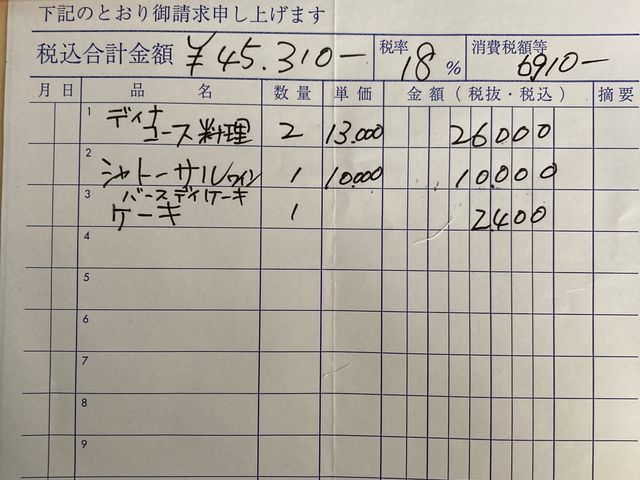 下記のとおり御請求申し上げます
税込合計金額 ¥45.310― 税率 18 % 消費税額等 6910―
月 日 品 名 数 量 単 価 金 額 ( 税抜・税込 ) 摘 要
1 ディナ
コース料理 2 13.000 26000
2 シャトーサルワイン 1 10.000 10.000
3 バースデイケーキ
ケーキ 1 2400
4
5
6
7
8
9